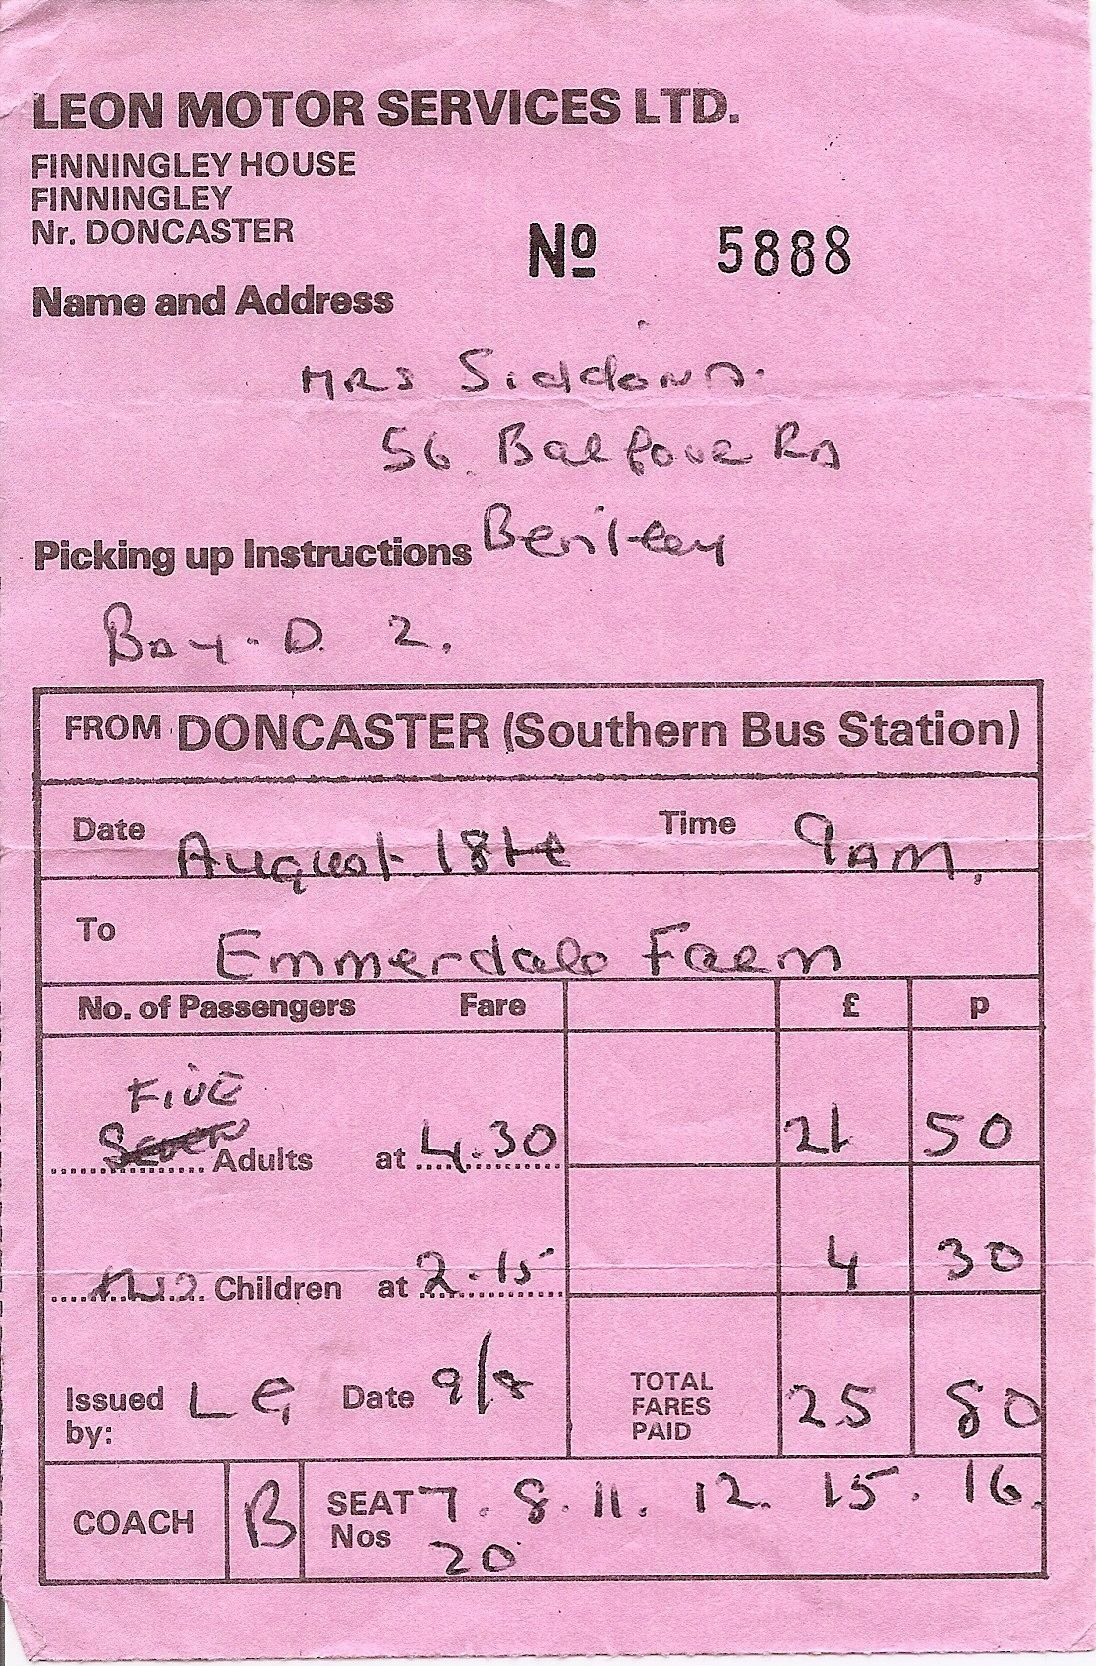 LEON MOTOR SERVICES LTD.
FINNINGLEY HOUSE
FINNINGLEY
Nr. DONCASTER
Nº 5888
Name and Address
MRS Siddons.
56 Balfour Rd
Bentley
Picking up Instructions
Bay. D. 2.
FROM DONCASTER (Southern Bus Station)
Date August 18th Time 9AM.
To Emmerdale Farm
No. of Passengers Fare £ p
FIVE
Seven Adults at 4.30 21 50
two Children at 2.15 4 30
Issued by: LG Date 9/8 TOTAL FARES PAID 25 80
COACH B SEAT Nos 7. 8. 11. 12. 15. 16.
20